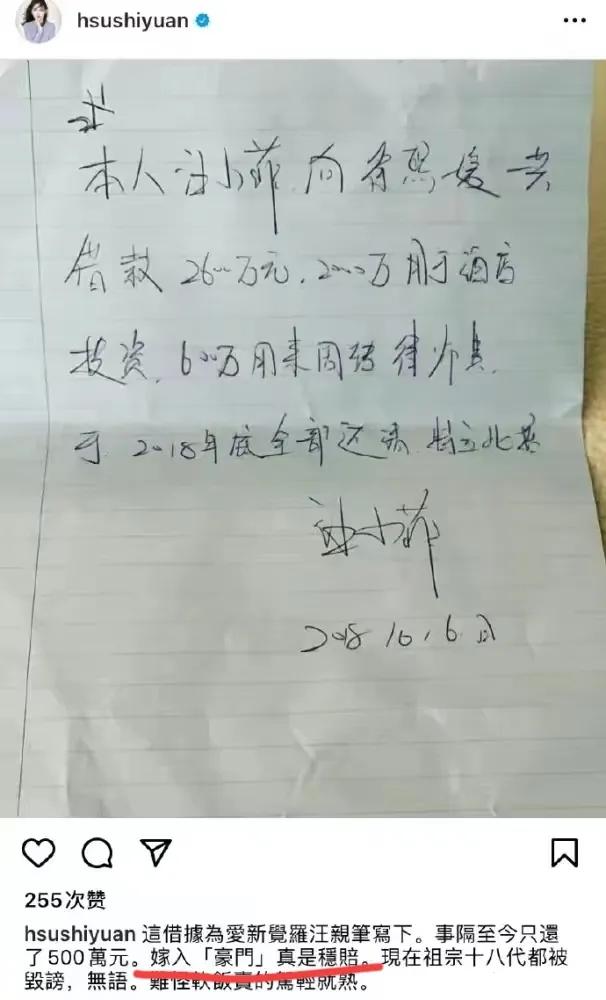 hsushiyuan
本人汪小菲向徐熙媛共
借款2600万元,2000万用于酒店
投资,600万用来周转律师费,
于2018年底全部还清.特立此据
汪小菲
2018 10.6日
255次赞
hsushiyuan 這借據為愛新覺羅汪親筆寫下。事隔至今只還
了500萬元。嫁入「豪門」真是穩賠。現在祖宗十八代都被
毀謗,無語。難怪軟飯賣的駕輕就熟。